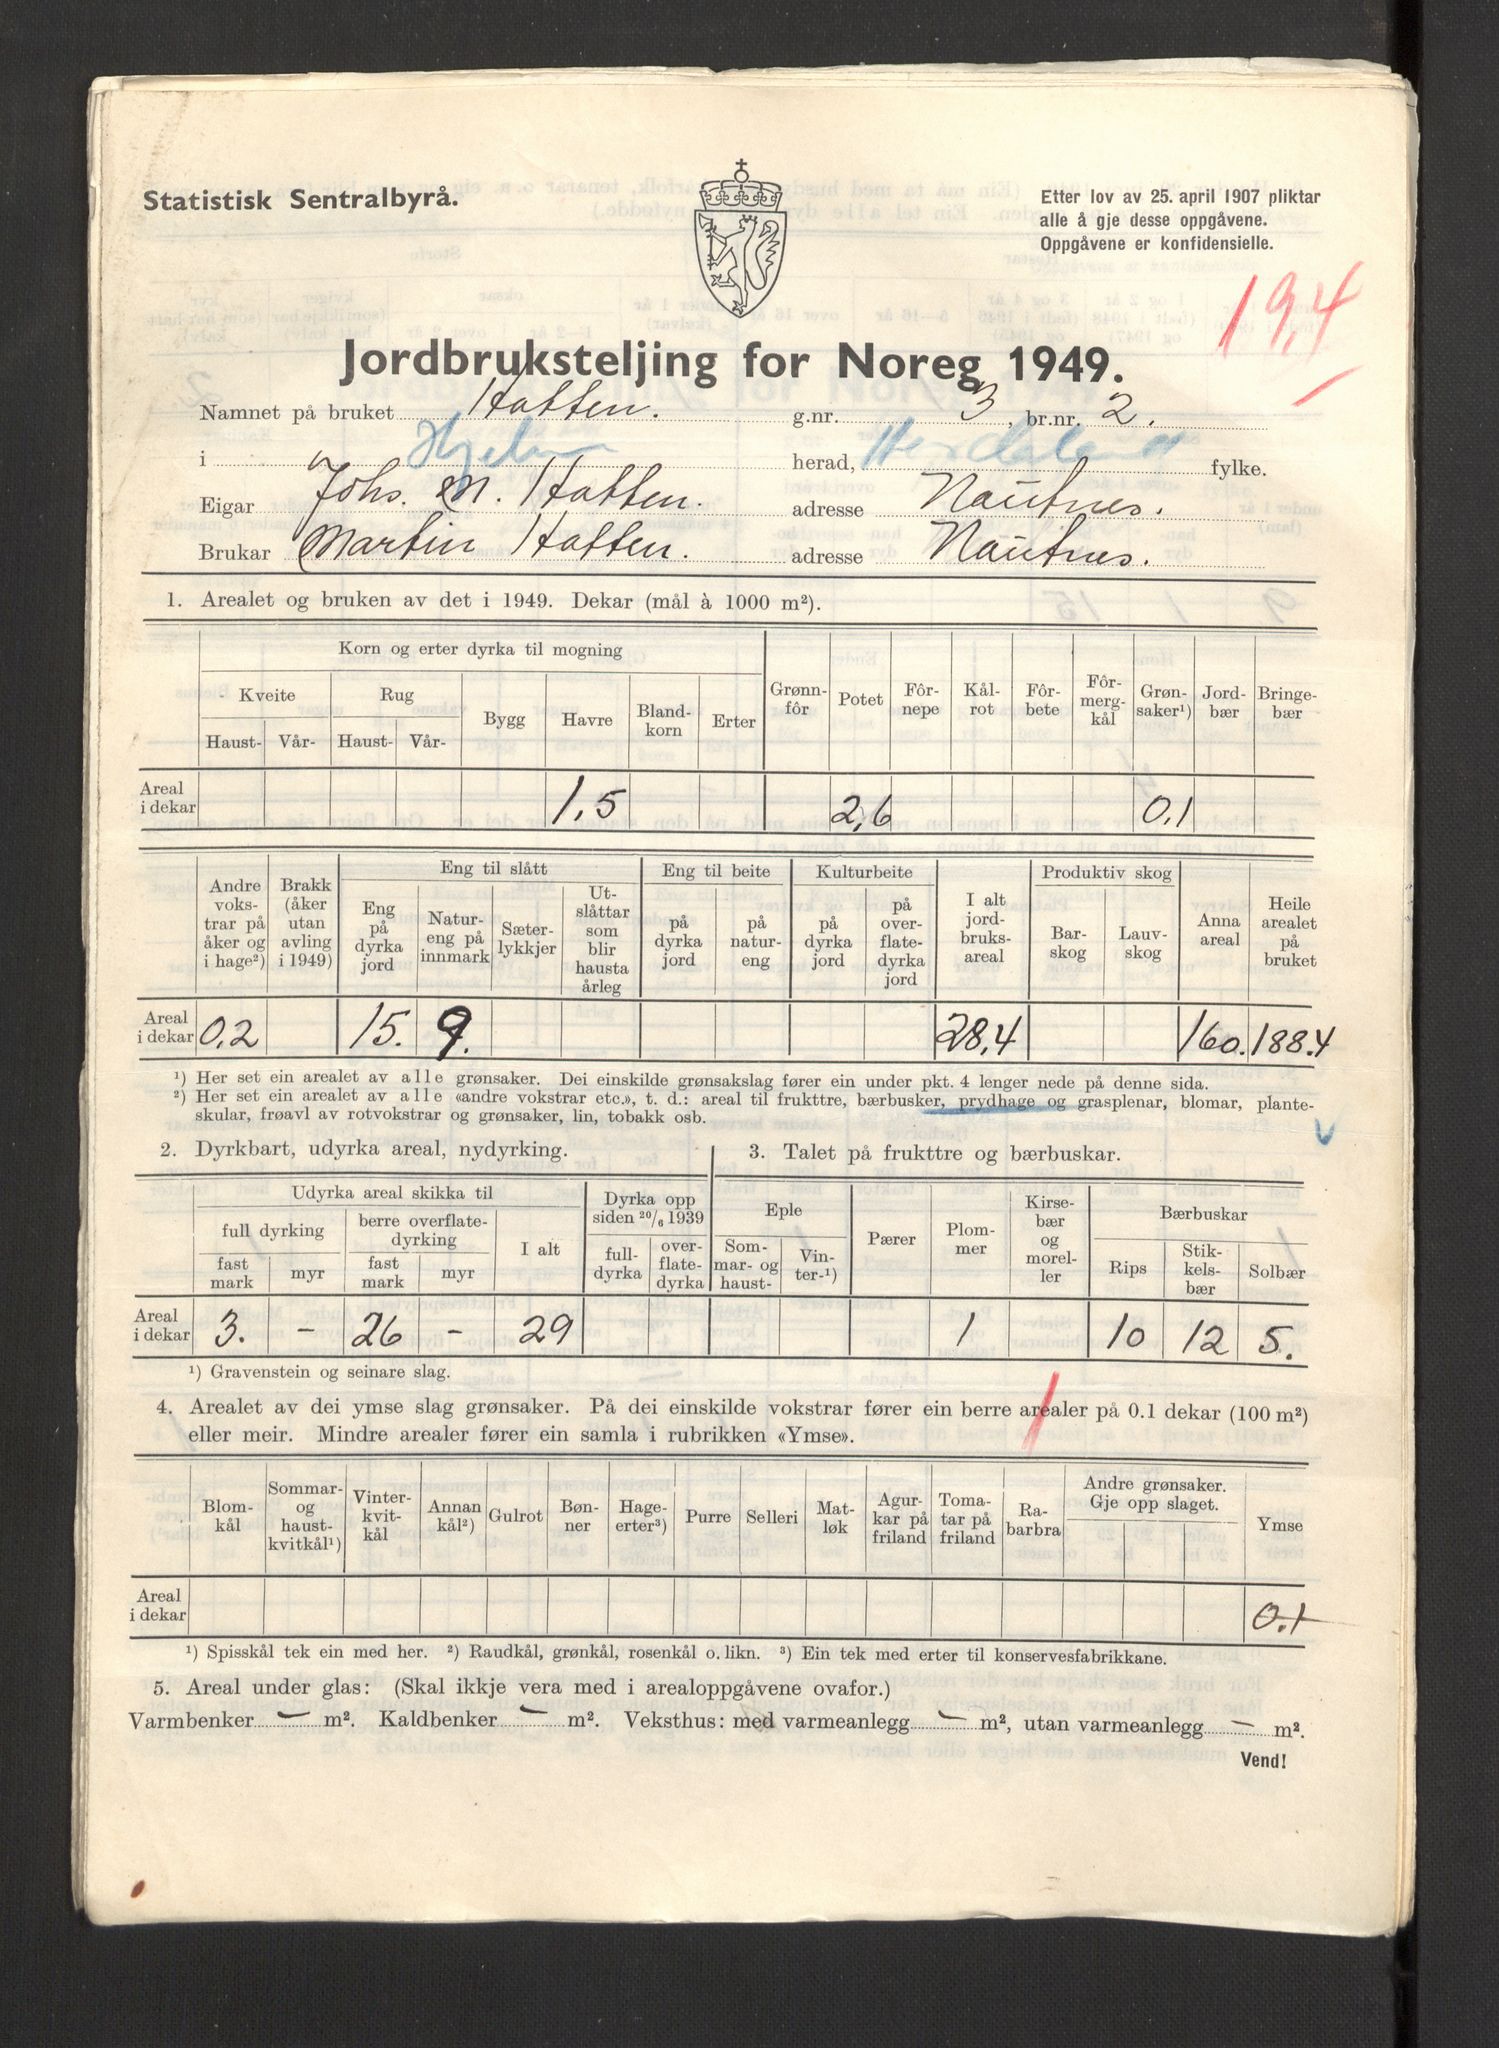 Statistisk Sentralbyrå.
Etter lov av 25. april 1907 pliktar
alle å gje desse oppgåvene.
Oppgåvene er konfidensielle.
19,4
Jordbruksteljing for Noreg 1949.
Namnet på bruket Hatten. g.nr. 3, br.nr. 2.
i Hjelme herad, Hordaland fylke.
Eigar Johs. M. Hatten. adresse Nautnes.
Brukar Martin Hatten. adresse Nautnes.
1. Arealet og bruken av det i 1949. Dekar (mål à 1000 m²).
Korn og erter dyrka til mogning
Kveite Rug Bygg Havre Bland-korn Erter Grønn-fôr Potet Fôr-nepe Kål-rot Fôr-bete Fôr-merg-kål Grøn-saker¹) Jord-bær Bringe-bær
Haust- Vår- Haust- Vår-
Areal i dekar 1,5 2,6 0,1
Andre voks-trar på åker og i hage²) Brakk (åker utan avling i 1949) Eng til slått Eng til beite Kulturbeite I alt jord-bruks-areal Produktiv skog Anna areal Heile arealet på bruket
Eng på dyrka jord Natur-eng på innmark Sæter-lykkjer Ut-slåttar som blir hausta årleg på dyrka jord på natur-eng på dyrka jord på over-flate-dyrka jord Bar-skog Lauv-skog
Areal i dekar 0,2 15. 9. 28,4 160. 188.4
¹) Her set ein arealet av alle grønsaker. Dei einskilde grønsakslag fører ein under pkt. 4 lenger nede på denne sida.
²) Her set ein arealet av alle «andre vokstrar etc.», t. d.: areal til frukttre, bærbusker, prydhage og grasplenar, blomar, plante-
skular, frøavl av rotvokstrar og grønsaker, lin, tobakk osb.
2. Dyrkbart, udyrka areal, nydyrking.
3. Talet på frukttre og bærbuskar.
Udyrka areal skikka til Dyrka opp siden 20/6 1939 Eple Pærer Plom-mer Kirse-bær og morel-ler Bærbuskar
full dyrking berre overflate-dyrking I alt full-dyrka over-flate-dyrka Som-mar- og haust- Vin-ter-¹) Rips Stik-kels-bær Solbær
fast mark myr fast mark myr
Areal i dekar 3. – 26 – 29 1 10 12 5.
¹) Gravenstein og seinare slag.
4. Arealet av dei ymse slag grønsaker. På dei einskilde vokstrar fører ein berre arealer på 0.1 dekar (100 m²)
eller meir. Mindre arealer fører ein samla i rubrikken «Ymse».
Blom-kål Sommar- og haust-kvitkål¹) Vinter-kvit-kål Annan kål²) Gulrot Bøn-ner Hage-erter³) Purre Selleri Mat-løk Agur-kar på friland Toma-tar på friland Ra-barbra Andre grønsaker. Gje opp slaget. Ymse
Areal i dekar 0.1
¹) Spisskål tek ein med her. ²) Raudkål, grønkål, rosenkål o. likn. ³) Ein tek med erter til konservesfabrikkane.
5. Areal under glas: (Skal ikkje vera med i arealoppgåvene ovafor.)
Varmbenker – m². Kaldbenker – m². Veksthus: med varmeanlegg – m², utan varmeanlegg – m².
Vend!